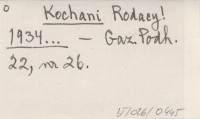 Kochani Rodacy!
1934... — Gaz. Podh.
22, nr 26.